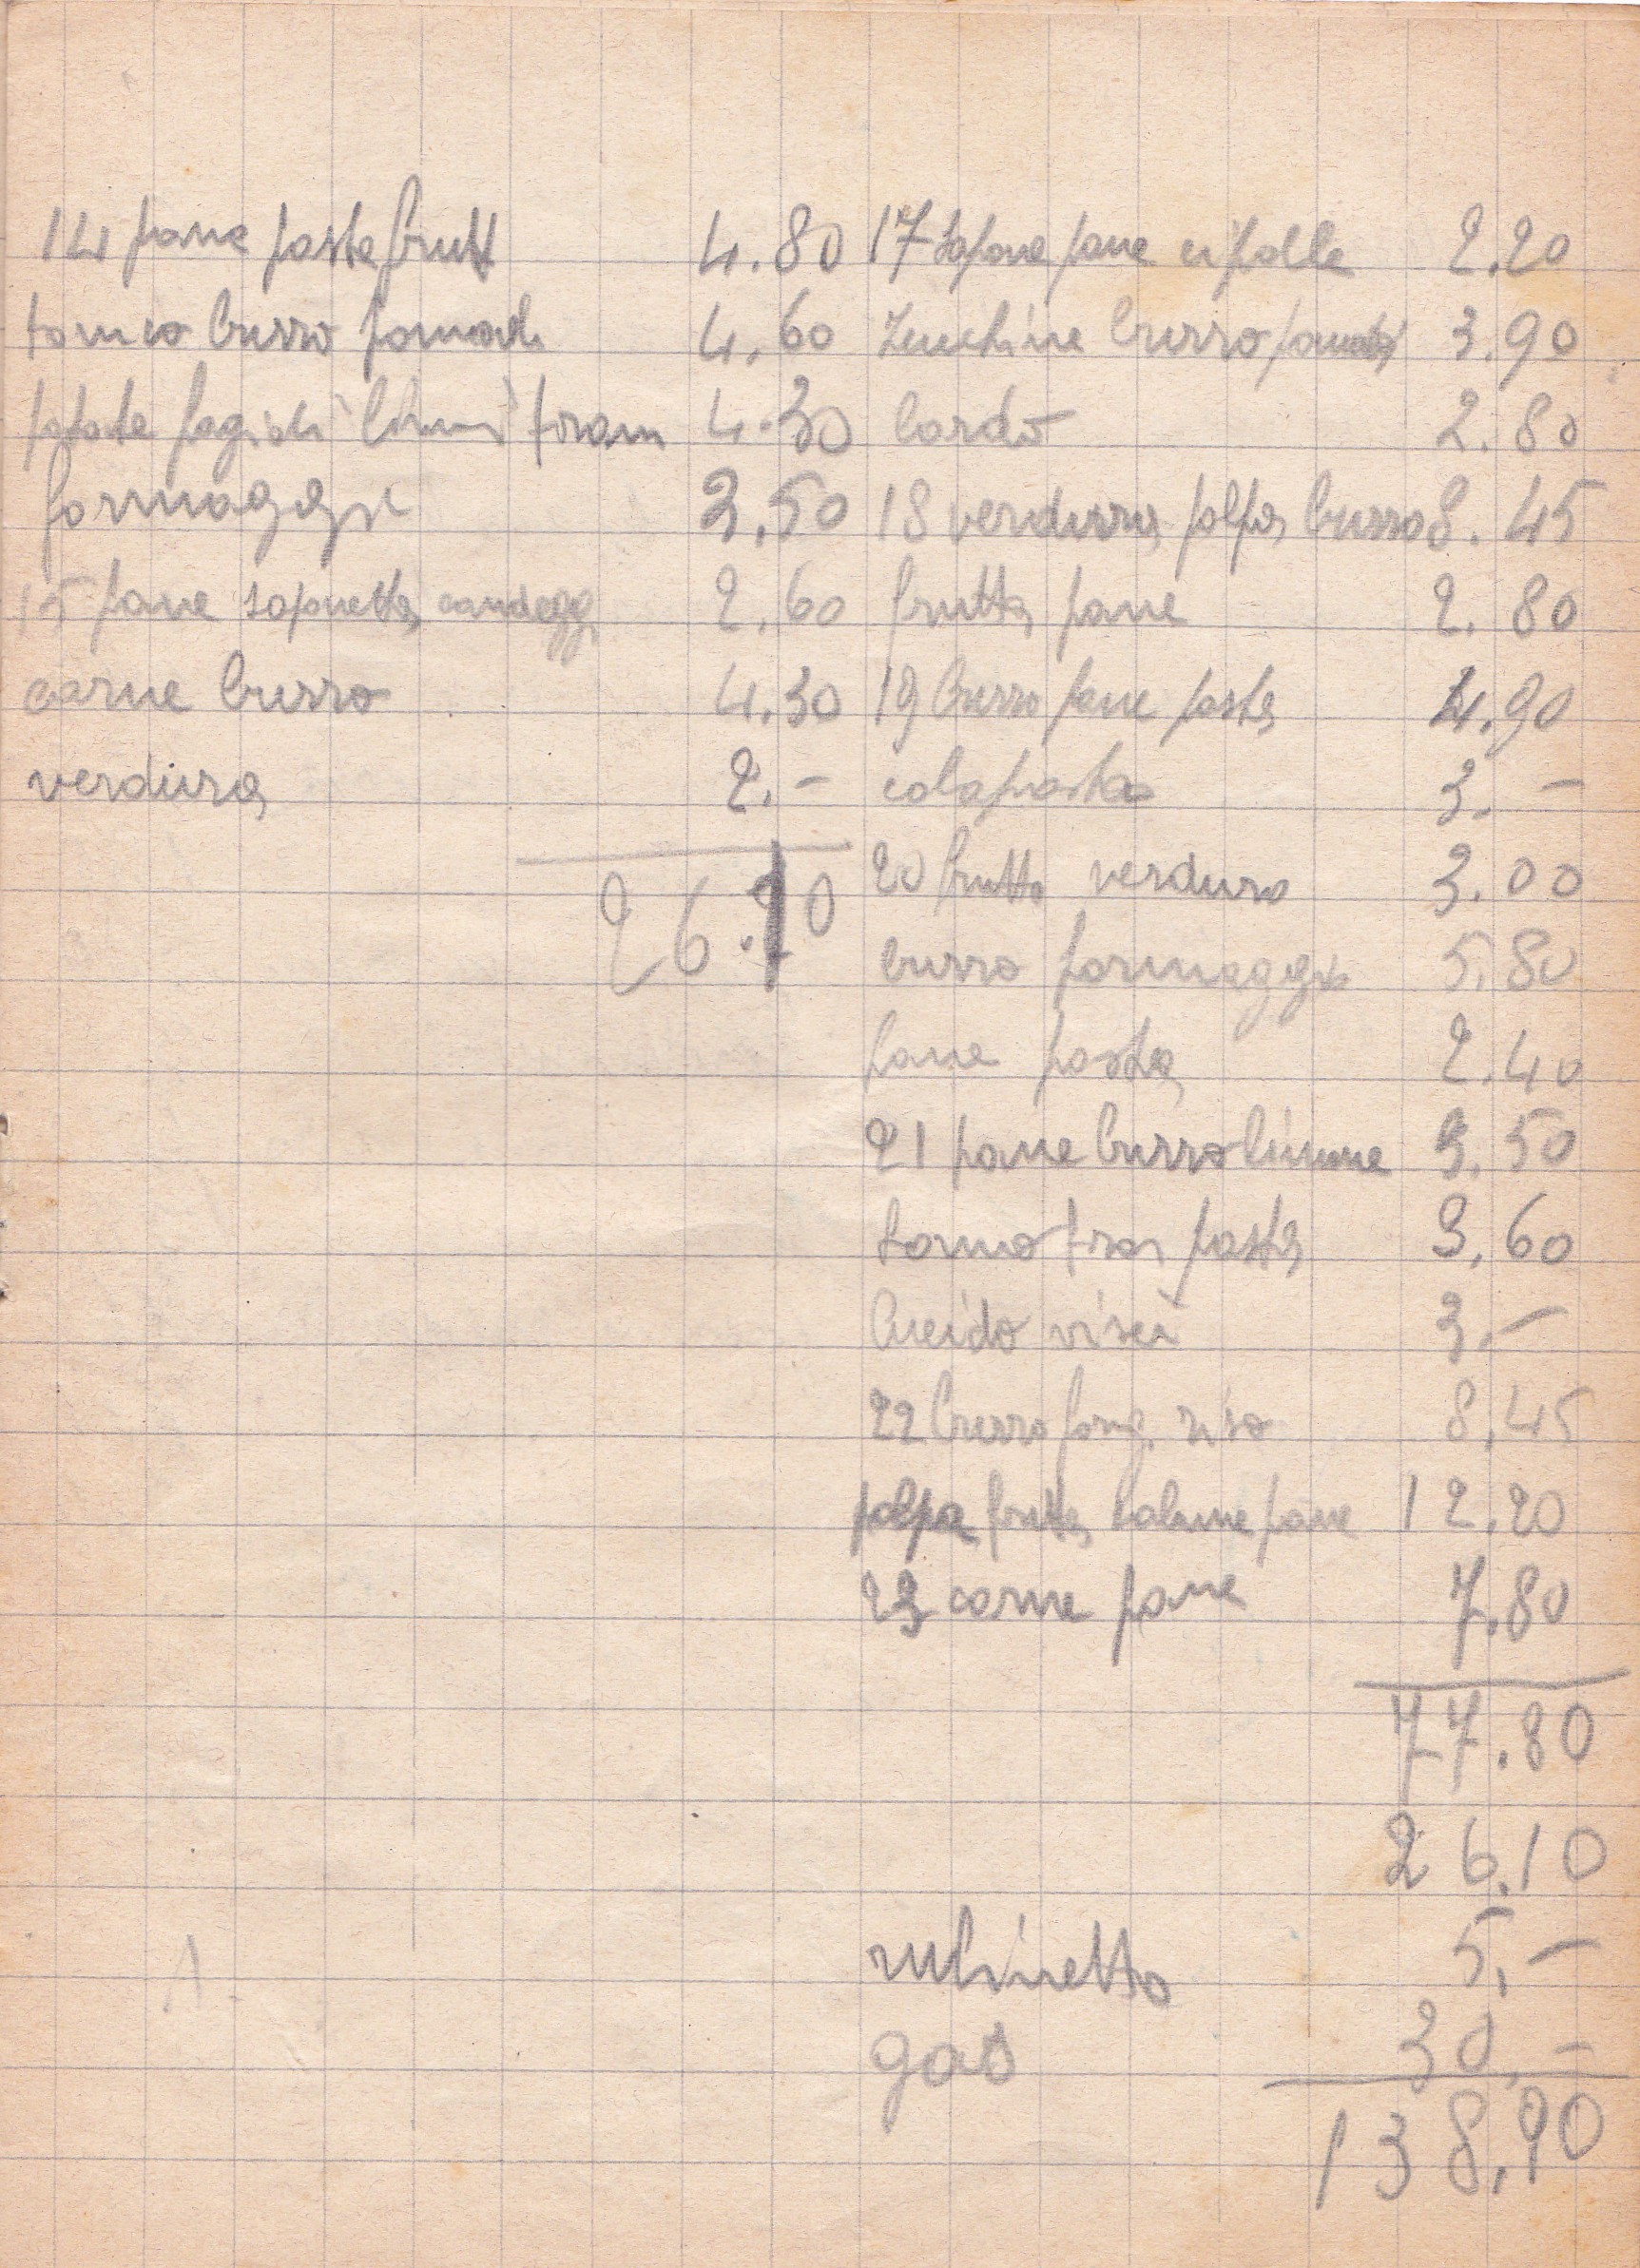 14 pane paste frutt 4.80
tonico burro pomodi 4.60
patate fagioli limi tram 4.30
formaggi 3.50
15 pane saponetta candegg 2.60
carne burro 4.30
verdura 2.-
26.10
17 sapone pane cipolle 2.20
zucchine burro 3.90
lardo 2.80
18 verdura polpa burro 8.45
frutta pane 2.80
19 burro pane pasta 4.90
colapasta 3.-
20 frutta verdura 3.00
burro formaggio 5.80
pane pasta 2.40
21 pane burro limone 3.50
tonno tra pasta 3.60
lucido 3.-
22 burro riso 8,45
polpa frutta salume pane 12.20
23 carne pane 7.80
77.80
26.10
rubinetto 5,-
gas 30,-
138,90